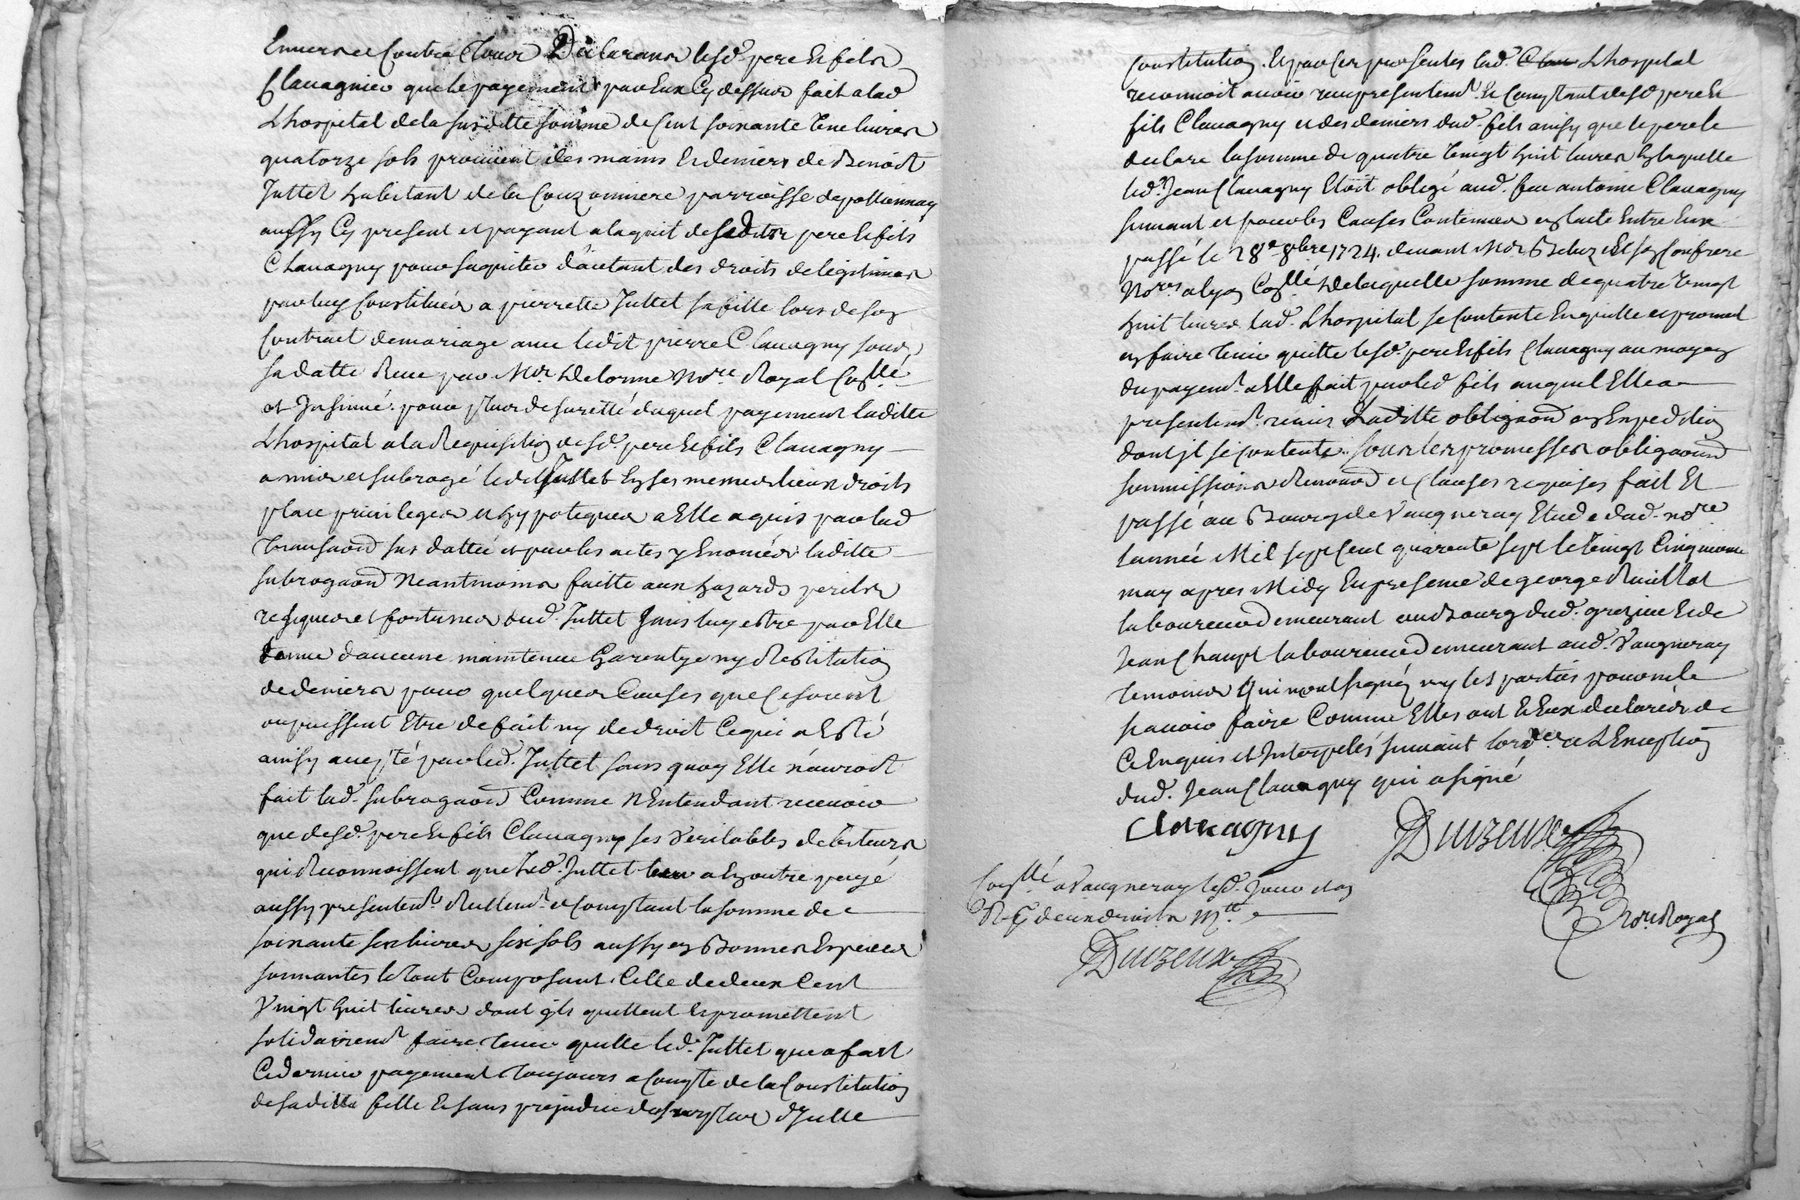 Envers et Contre Tous Declarant lesd. pere et fils
Clauagnieu que le payement par Eux Cy dessus fait a lad
Lhospital de la susditte somme de Cent soixante Une liures
quatorze sols prouient des mains Et deniers de Benoist
Juttet habitant de la Couzonniere parroisse de pollionnay
aussy Cy present et payant a laquit desdits pere et fils
Clauagny pour saquiter d'autant des droits de legitimes
par luy Constitués a pierrette Juttet sa fille lors de son
Contract de mariage auec ledit pierre Clauagny sous
sa datte Receu par Mre Delorme Nore Royal Conllé
et Insinué. pour plus de suretté duquel payement laditte
Lhospital a la Requisition desd. pere et fils Clauagny
a mis et subrogé ledit Juttet En ses mesmes lieux droits
place priuileges et hypoteques a Elle aquis par lad
Transaon sus dattée et par les actes y Enoncés laditte
subrogaon Neantmoins faitte aux hazards perils
risques et fortunes dud. Juttet sans luy estre par Elle
tenue d'aucune maintenue Garentye ny Restitution
de deniers pour quelques Causes que Ce soient
ou puissent Etre de fait ny de droit Ce qui a Esté
ainsy accepté par led. Juttet sans quoy Elle n'auroit
fait lad. subrogaon Comme N'Entendant receuoir
que desd. pere et fils Clauagny ses Veritables debiteurs
qui Reconnoissent que led. Juttet leur a En outre payé
aussy presentemt. Reellemt. et Comptant la somme de
soixante six liures six sols aussy en Bonnes Especes
sonnantes le Tout Composant Celle de deux Cent
Vingt huit liures dont ils quittent Et promettent
solidairemt faire tenir quitte led. Juttet que a fait
Ce dernier payement Toujours a Compte de la Constitution
de sa ditte fille Et sans prejudice du surplus d'Icelle
Constitution. Et par Ces presentes lad. Lhospital
reconnoit auoir reçu presentemt. Et Comptant desd pere Et
fils Clauagny et des deniers dud. fils ainsy que le pere le
declare la somme de quatre Vingt huit liures En laquelle
led. Jean Clauagny Etoit obligé aud. feu antoine Clauagny
suiuant et pour les Causes Contenues en lacte Entre Eux
passé le 28e 8bre 1724. deuant Mre Beluz Et son Confrere
Nores a lyon Conllé de laquelle somme de quatre Vingt
huit liures lad. Lhospital se Contente En quitte et promet
en faire tenir quitte lesd. pere et fils Clauagny au moyen
du payemt. a Elle fait par led fils auquel Elle a
presentemt. remis Laditte obligaon en Expedition
dont il se Contente. sous les promesses obligaons
soumissions Renonons et Clauses requises fait Et
passé au Bourg de Vaugneray Etude dud. nore
lannée Mil sept Cent quarente sept le Vingt Cinquieme
may apres Midy En presence de george Raillot
laboureur demeurant au Bourg dud. grezieu Et de
Jean Chaupt laboureur demeurant aud. Vaugneray
temoins qui n'ont signéz ny les parties pour ne le
sçauoir faire Comme Elles ont Et Eux declarés de
Ce Enquis et Interpelés suiuant lordce a L'Exception
dud. Jean Clauagny qui a signé
Clauagny Duizeux
Conllé a Vaugneray led. Jour
Nore Royal
Duizeux